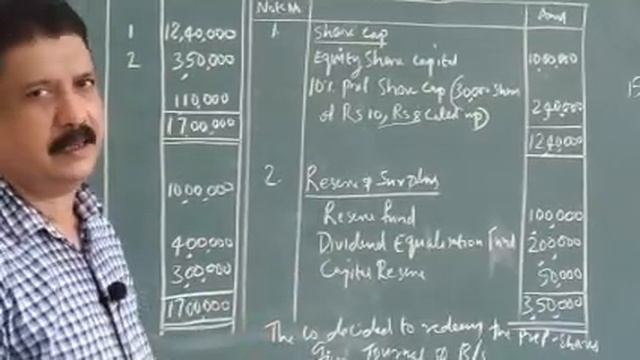 Note No Amt
1 12,40,000 1. Share cap
2 3,50,000 Equity Share Capital 10,00,000
10% Pref Share Cap (30,000 Share
110,000 of Rs 10, Rs 8 Called up) 240,000
1700,000 1240,000
2. Reserve & Surplus
10,00,000
Reserve fund 100,000
400,000 Dividend Equalisation Fund 200,000
300,000 Capital Reserve 50,000
1700000 3,50,000
The co decided to redeem the pref-shares
Journal & B/
15